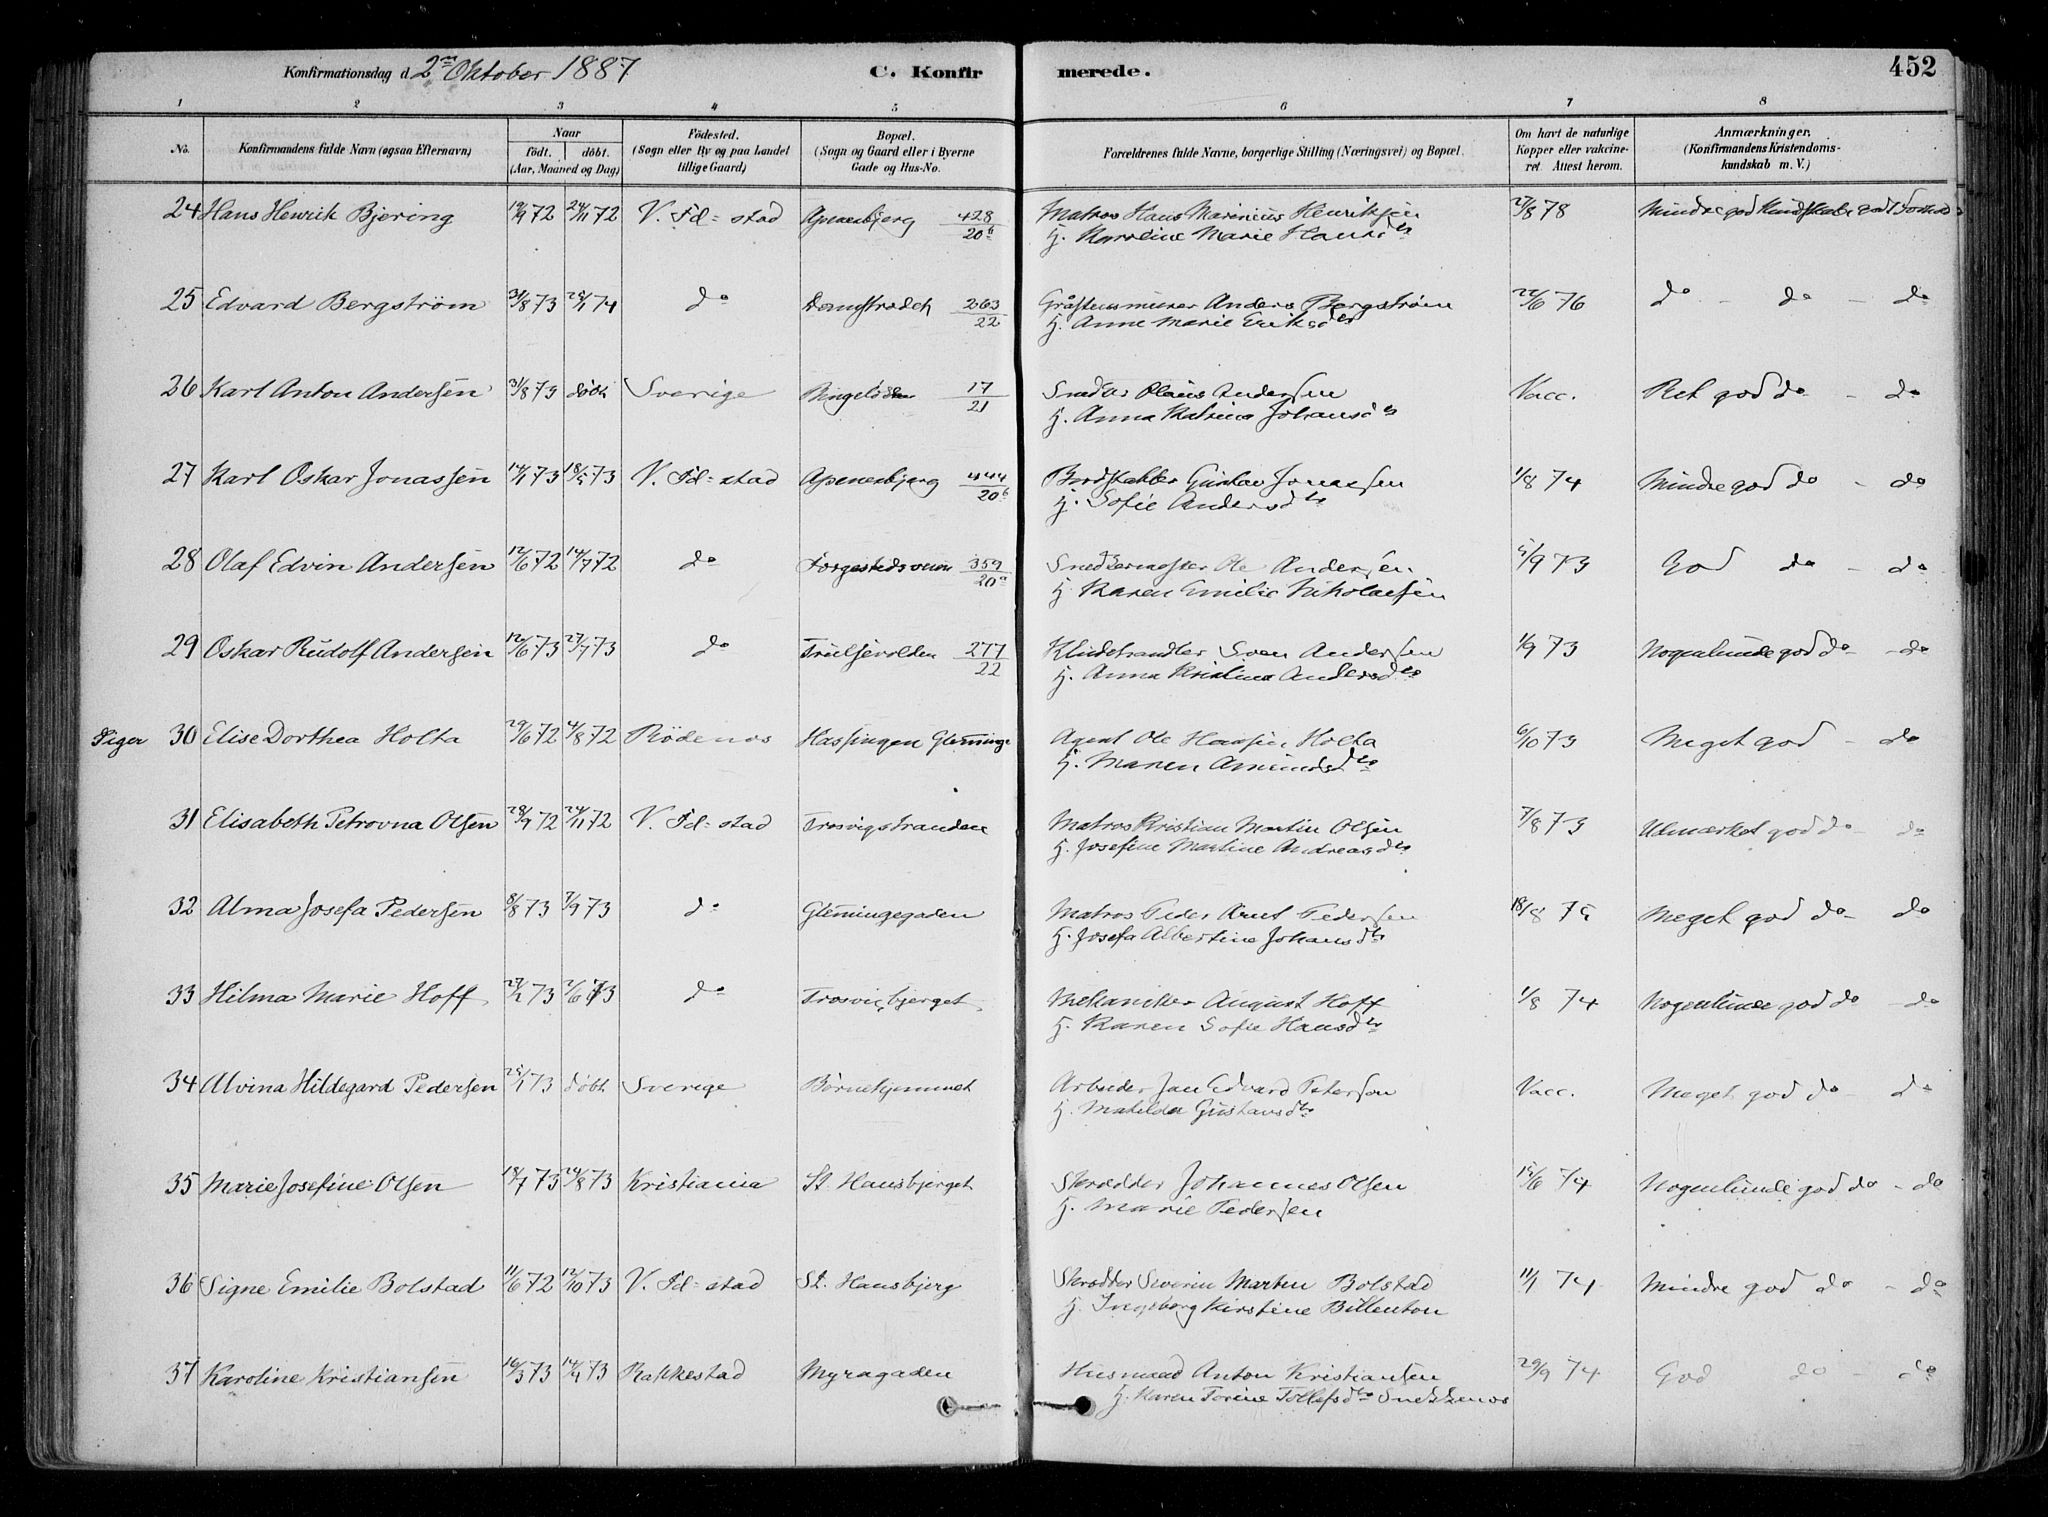 Konfirmationsdag d. 2den Oktober 1887 C. Konfirmerede. 452
1 2 3 4 5 6 7 8
No. Konfirmandens fulde Navn (ogsaa Efternavn) Naar födt. döbt. (Aar, Maaned og Dag) Födested. (Sogn eller By og paa Landet tillige Gaard) Bopæl. (Sogn og Gaard eller i Byerne Gade og Hus-No. Forældrenes fulde Navne, borgerlige Stilling (Næringsvei) og Bopæl. Om havt de naturlige Kopper eller vakcineret. Attest herom. Anmærkninger. (Konfirmandens Kristendomskundskab m. V.)
24 Hans Henrik Bjering 19/9 72 24/11 72 V. Fd=stad Apenesbjerg 428/20b Matros Hans Marinius Henriksen 27/8 78 Mindre god Kundskab godt Forhold
H. Karoline Marie Hansdtr
25 Edvard Bergström 31/8 73 25/1 74 do 263/22 Gråstensmurer Anders Bergström 22/6 76 do - do - do
H. Anne Marie Eriksdtr
26 Karl Anton Andersen 31/8 73 döbt Sverige 17/21 Snedker Olaus Andersen Vacc. Ret god do - do
H. Anna Katrina Johansdtr
27 Karl Oskar Jonassen 14/1 73 18/5 73 V. Fd=stad Apenesbjerg 444/20b Gustav Jonassen 1/8 74 Mindre god do - do
H. Sofie Andersdtr
28 Olaf Edvin Andersen 12/6 72 14/7 72 do 359/20a Snedkermester Ole Andersen 5/9 73 God do - do
H. Karen Emilie Nikolaisen
29 Oskar Rudolf Andersen 12/6 73 27/7 73 do Trulsevolden 277/22 Kludehandler Sven Andersen 1/9 73 Nogenlunde god do - do
H. Anna Kristina Andersdtr
Piger 30 Elise Dorthea Holta 29/6 72 4/8 72 Rödenes Hassingen Glemminge Agent Ole Hansen Holta 6/10 73 Meget god - do
H. Maren Amundsdtr
31 Elisabeth Petrovna Olsen 28/9 72 24/11 72 V. Fd=stad Trosvigstranden Matros Kristian Martin Olsen 7/8 73 Udmærket god do - do
H. Josefine Martine Andreasdtr
32 Alma Josefa Pedersen 8/8 73 7/9 73 do Glemmingegaden Matros Peder Arnt Pedersen 18/8 75 Meget god do - do
H. Josefa Albertine Johansdtr
33 Hilma Marie Hoff 27/2 73 2/6 73 do Trosvigbjerget Mekaniker August Hoff 1/8 74 Nogenlunde god do - do
H. Karen Sofie Hansdtr
34 Alvina Hildegard Pedersen 25/1 73 döbt Sverige Börnehjemmet Arbeider Jan Edvard Peterson Vacc. Meget god do - do
H. Matilda Gustavsdtr
35 Marie Josefine Olsen 18/7 73 24/8 73 Kristiania St. Hansbjerget Skrædder Johannes Olsen 15/6 74 Nogenlunde god do - do
H. Marie Pedersen
36 Signe Emilie Bolstad 11/6 72 12/10 73 V. Fd=stad St. Hansbjerg Skrædder Severin Martin Bolstad 11/1 74 Mindre god do - do
H. Ingeborg Kirstine Billenton
37 Karoline Kristiansen 16/3 73 14/4 73 Rakkestad Myragaden Husmand Anton Kristiansen 29/9 74 God do - do
H. Karen Torine Tollefsdtr